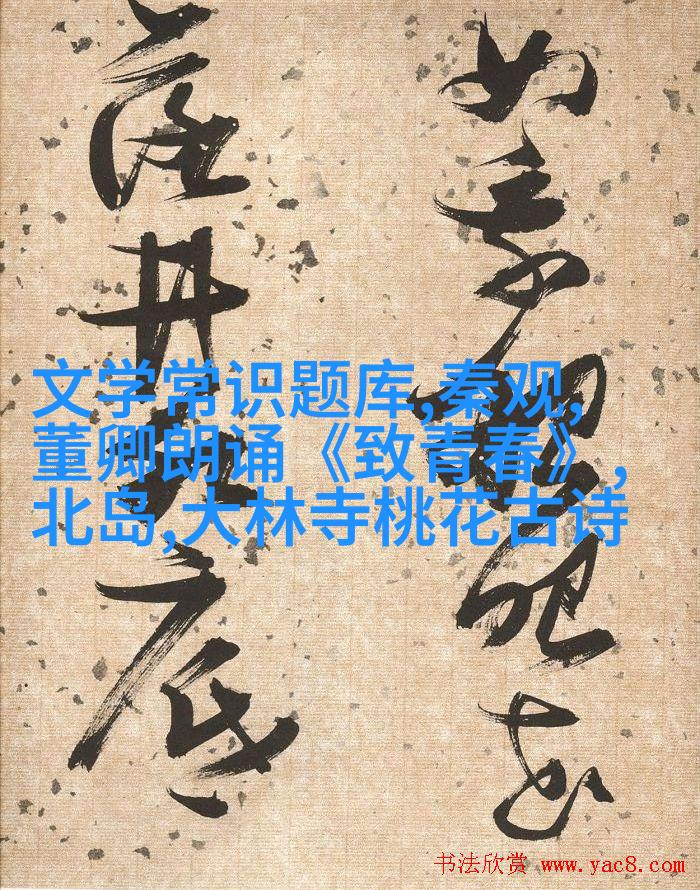 似乘船眼花
落井水底
文学常识题库,秦观,
董卿朗诵《致青春》,
北岛,大林寺桃花古诗
书法欣赏 www.yac8.com